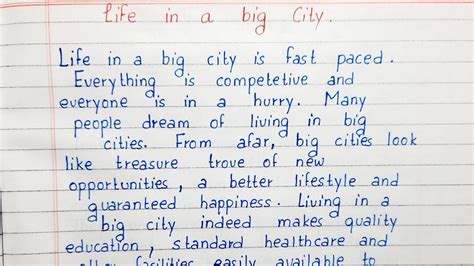 Life in a big City.
Life in a big city is fast paced.
Everything is competetive and
everyone is in a hurry. Many
people dream of living in big
cities. From afar, big cities look
like treasure trove of new
opportunities, a better lifestyle and
guaranteed happiness. Living in a
big city indeed makes quality
education, standard healthcare and
other facilities easily available to